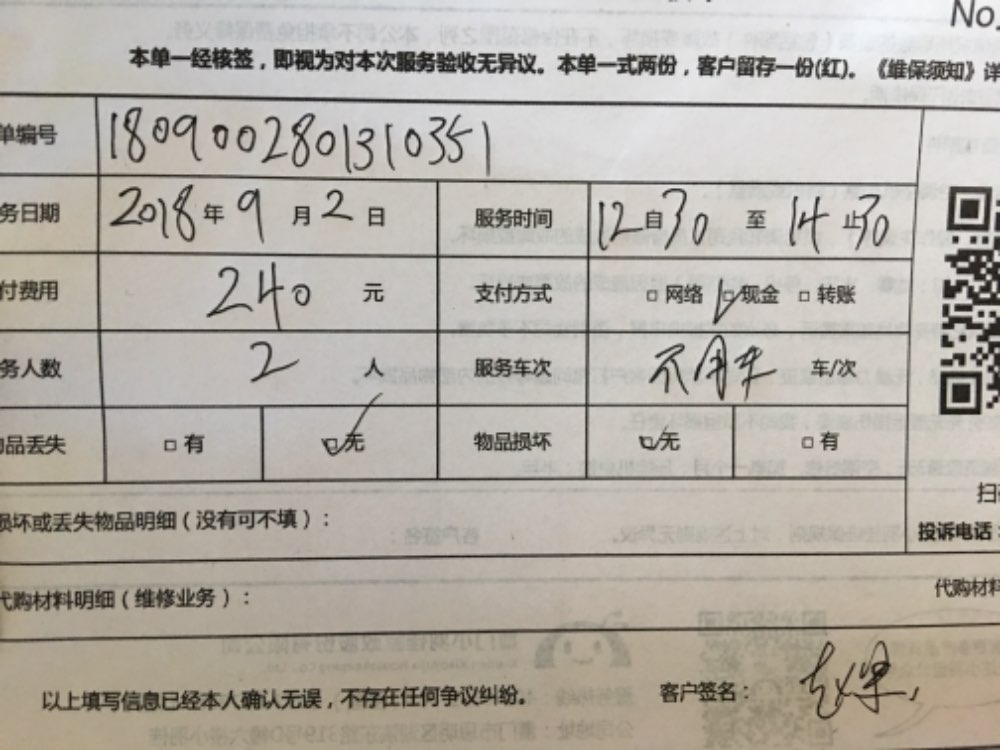 No
本单一经核签，即视为对本次服务验收无异议。本单一式两份，客户留存一份(红)。《维保须知》详
单编号 1809002801310351
务日期 2018 年 9 月 2 日 服务时间 12 自 30 至 14 止 30
付费用 240 元 支付方式 □ 网络 □ 现金 □ 转账
务人数 2 人 服务车次 不用车 车/次
物品丢失 □ 有 □ 无 物品损坏 □ 无 □ 有
扫
损坏或丢失物品明细（没有可不填）：
投诉电话：
代购材料明细（维修业务）：
代购材料
以上填写信息已经本人确认无误，不存在任何争议纠纷。 客户签名：